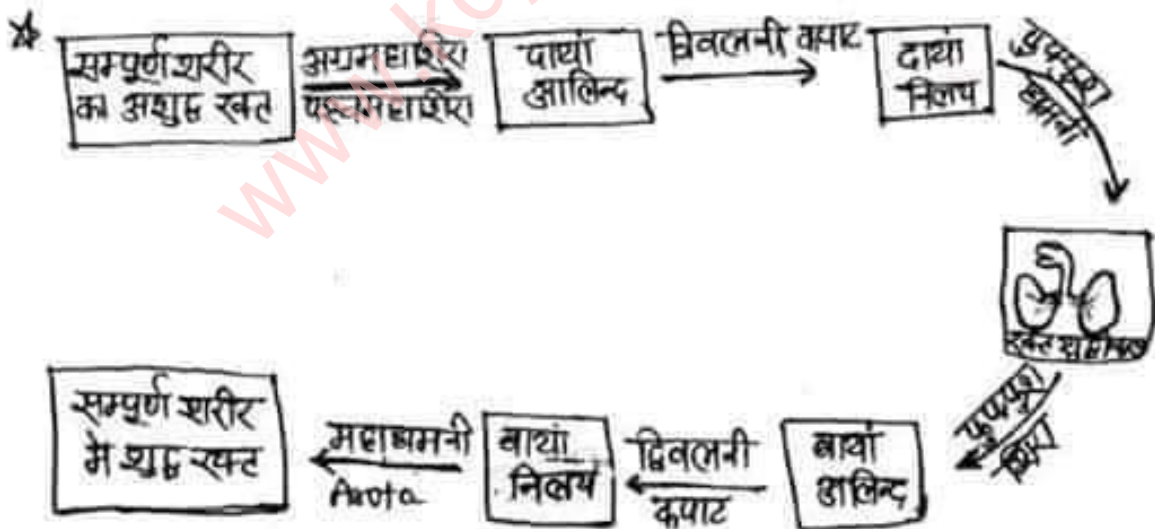 सम्पूर्ण शरीर
का अशुद्ध रक्त
अग्रमहाशिरा
पश्चमहाशिरा
दायां
आलिन्द
त्रिवलनी कपाट
दायां
निलय
फुफ्फुस
धमनी
रक्त शुद्धीकरण
फुफ्फुस
शिरा
बायां
आलिन्द
द्विवलनी
कपाट
बायां
निलय
महाधमनी
Arota
सम्पूर्ण शरीर
में शुद्ध रक्त